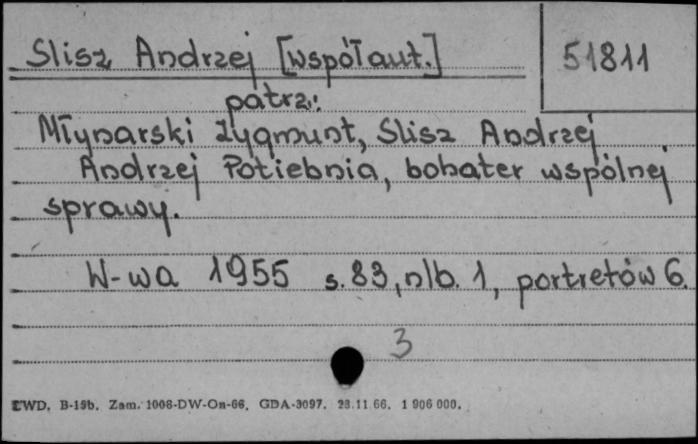 Slisz Andrzej [współaut.]
51811
patrz:
Młynarski Zygmunt, Slisz Andrzej
Andrzej Potiebnia, bohater wspólnej
sprawy.
W-wa 1955 s. 83, nlb. 1, portretów 6.
3
LWD. B-15b. Zam. 1008-DW-On-66. GDA-3097. 23.11.66. 1 906 000.